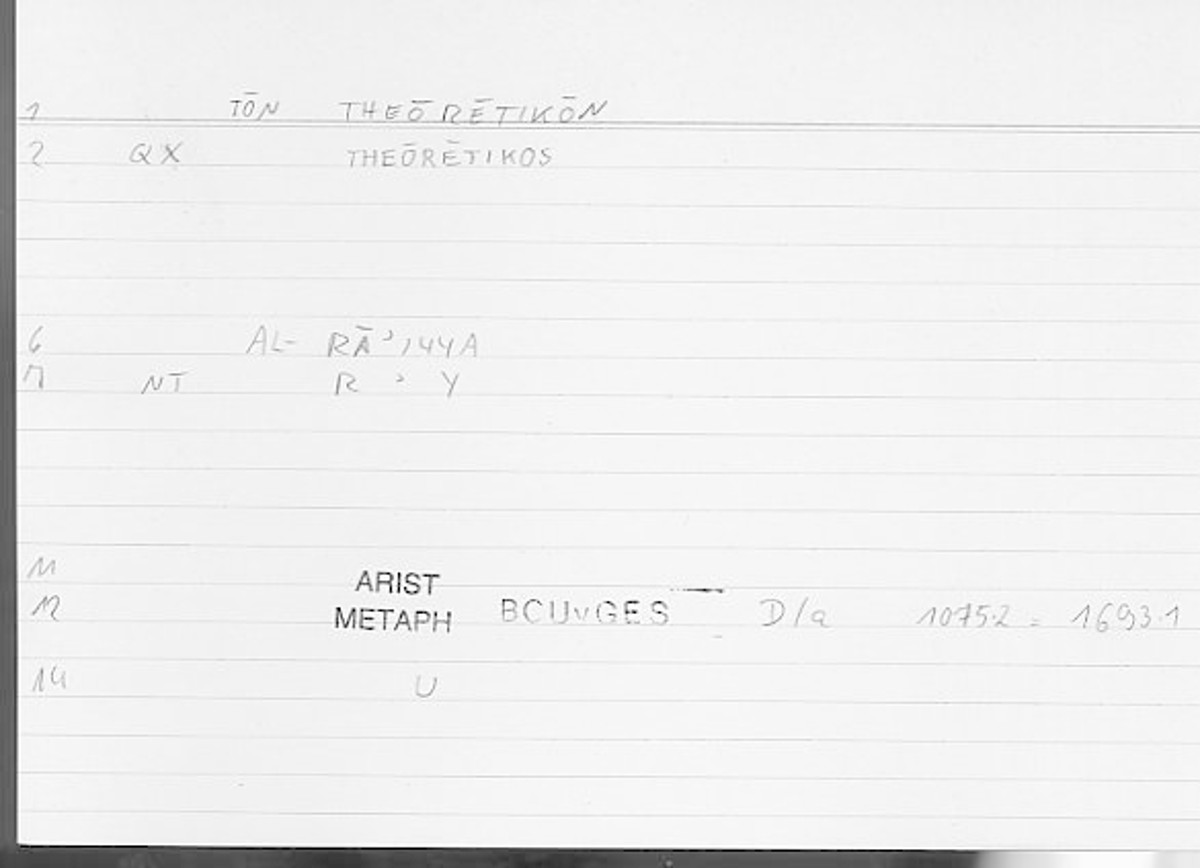 1 TŌN THEŌRĒTIKŌN
2 QX THEŌRĒTIKOS
6 AL- RĀʾIYYA
7 NT R ʾ Y
11 ARIST
12 METAPH BOUYGES D/a 1075.2 = 1693.1
14 U